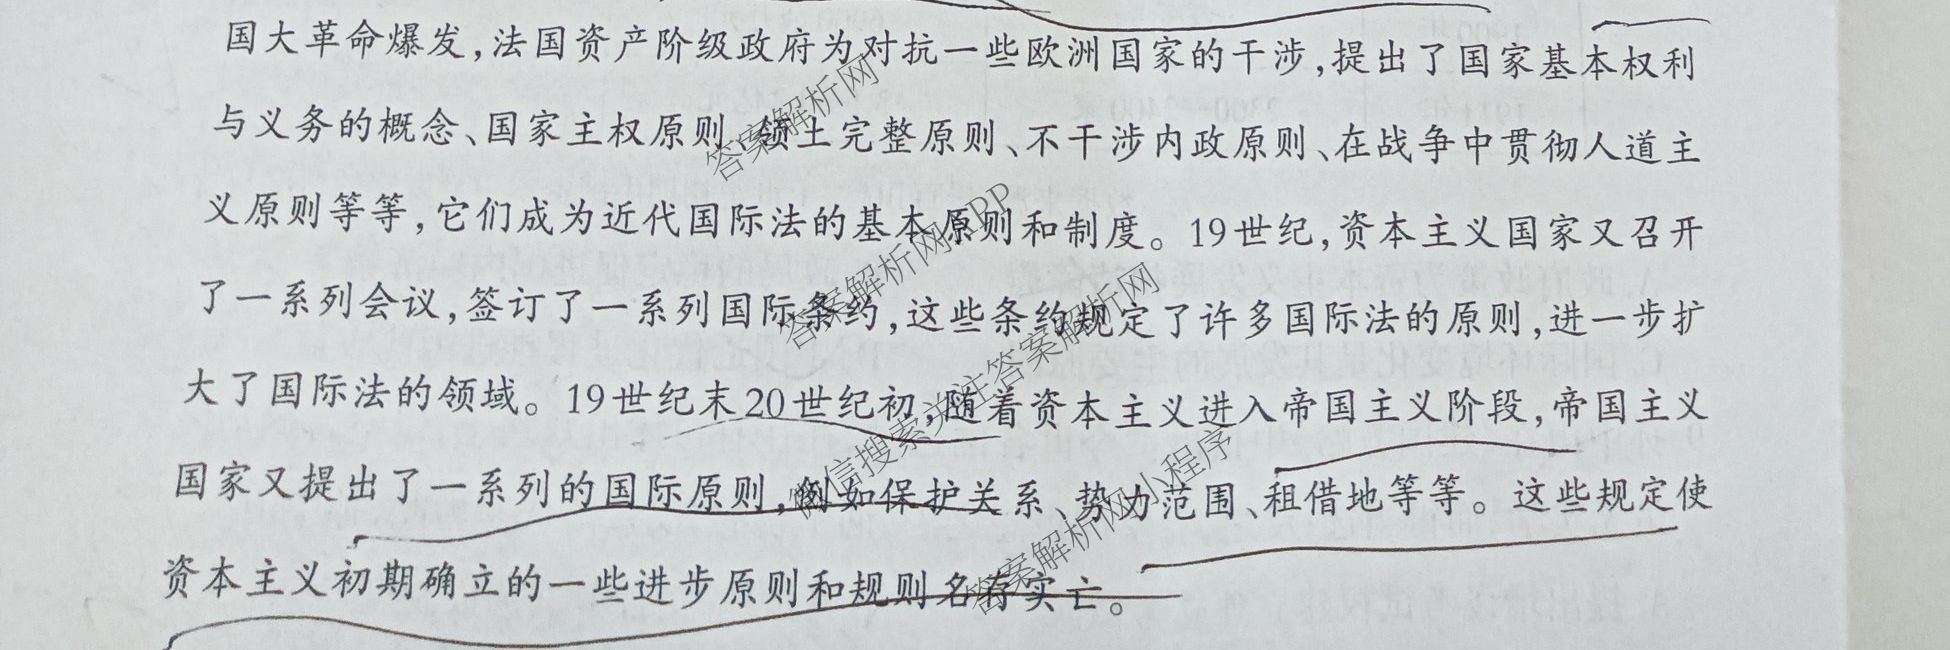 国大革命爆发,法国资产阶级政府为对抗一些欧洲国家的干涉,提出了国家基本权利
与义务的概念、国家主权原则、领土完整原则、不干涉内政原则、在战争中贯彻人道主
义原则等等,它们成为近代国际法的基本原则和制度。19世纪,资本主义国家又召开
了一系列会议,签订了一系列国际条约,这些条约规定了许多国际法的原则,进一步扩
大了国际法的领域。19世纪末20世纪初,随着资本主义进入帝国主义阶段,帝国主义
国家又提出了一系列的国际原则,例如保护关系、势力范围、租借地等等。这些规定使
资本主义初期确立的一些进步原则和规则名存实亡。
答案解析网
答案解析网APP
微信搜索关注答案解析网
答案解析网小程序